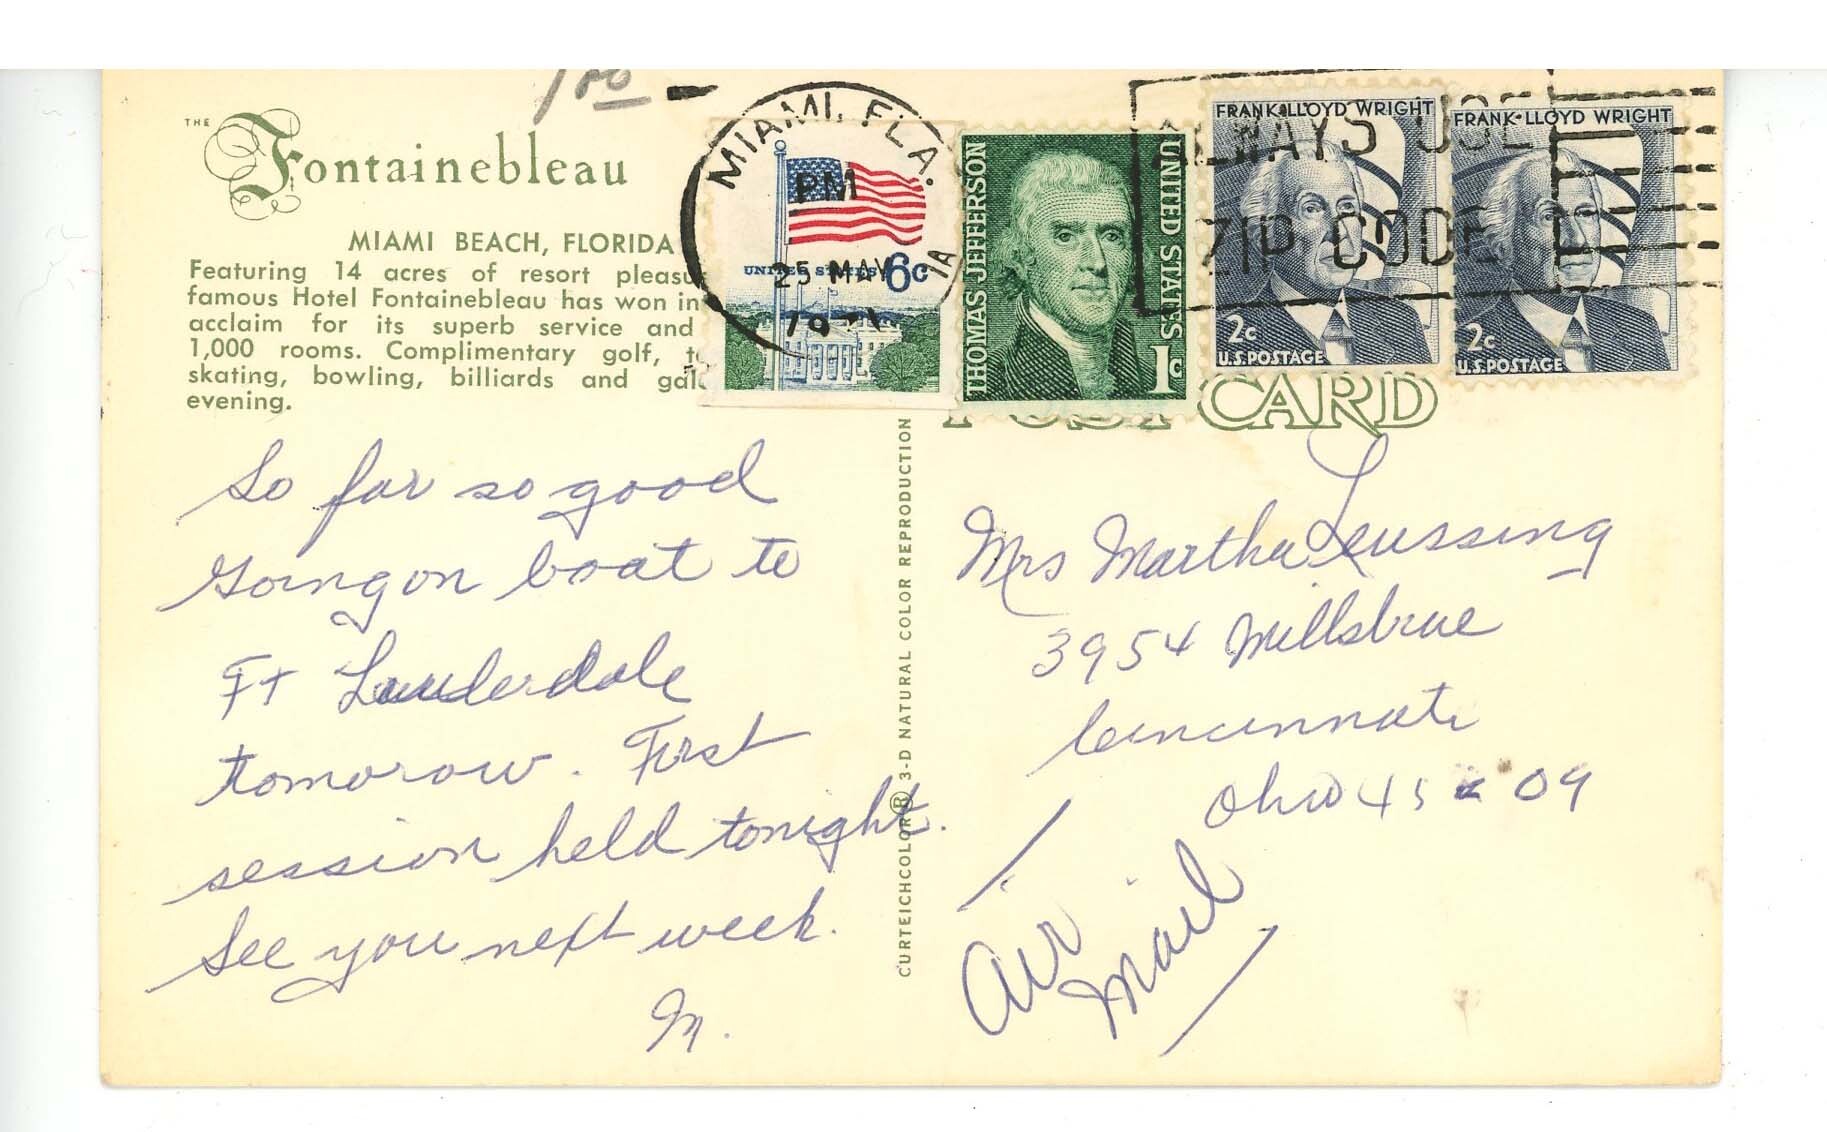 1.00
THE
Fontainebleau
MIAMI BEACH, FLORIDA
Featuring 14 acres of resort pleasu
famous Hotel Fontainebleau has won in
acclaim for its superb service and
1,000 rooms. Complimentary golf, t
skating, bowling, billiards and gal
evening.
MIAMI, FLA.
PM
25 MAY
1971
1A
UNITED STATES 6c
THOMAS JEFFERSON
UNITED STATES
1c
FRANK LLOYD WRIGHT
2c
U.S. POSTAGE
FRANK LLOYD WRIGHT
2c
U.S. POSTAGE
ALWAYS USE
ZIP CODE
POST CARD
So far so good
Going on boat to
Ft Lauderdale
tomorow. First
session held tonight.
See you next week.
M.
CURTEICHCOLOR ® 3-D NATURAL COLOR REPRODUCTION
Mrs Martha Leussing
3954 Millsbrae
Cincinnati
Ohio 45209
Air
Mail